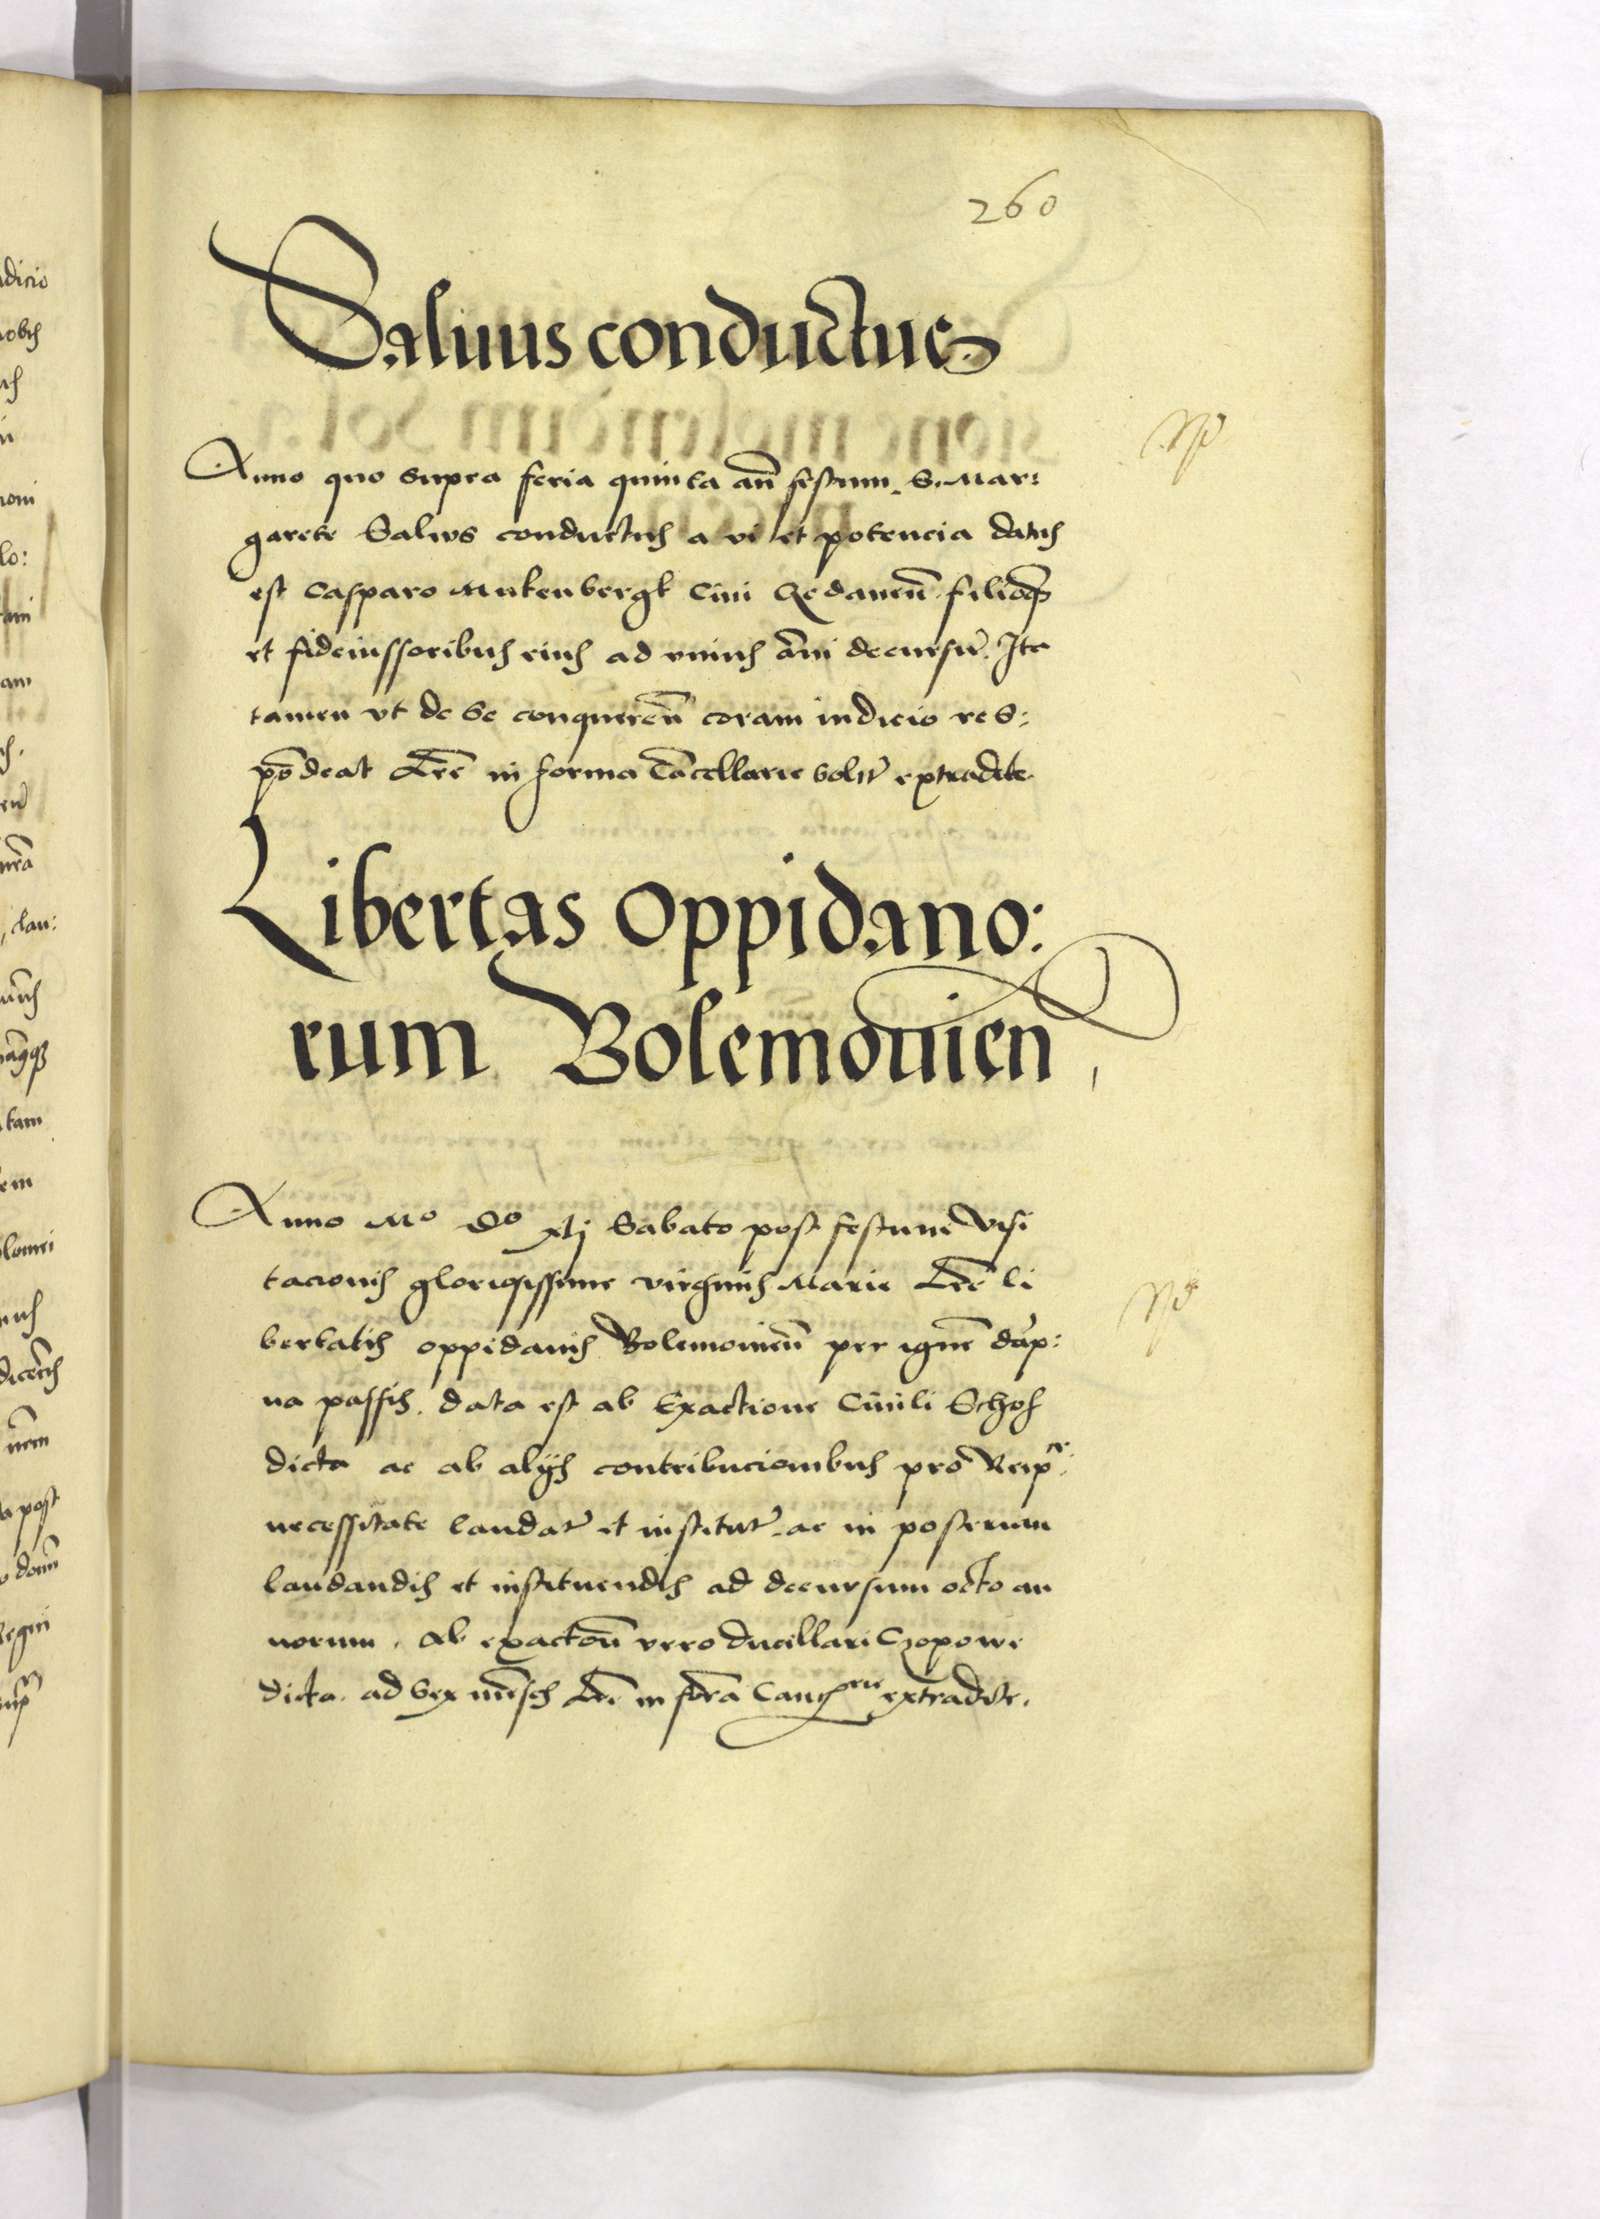 260
Saluus conductus
Anno quo supra feria quinta an̄ festum S. Mar:
garete Saluus conductus a vi et potencia datus
est Casparo Mukenbergk Ciui Gedanen̄ filiisqʒ
et fideiussoribus eius ad vnius āni decursū. Ita
tamen vt de se conqueren̄ coram iudicio res:
pōdeat Lr̄e in forma Cācellarie solitῖ extradite
Libertas oppidano:
rum Bolemouien
Anno Mo Do xlj Sabato post festum Visi
tacionis gloriosissime virginis Marie Lr̄e li
bertatis oppidanis Bolemouien̄ per ignē dāp:
na passis. data est ab Exactione Ciuili Schos
dicta ac ab alijs contribucionibus pro Reip
necessitate laudat̄ et institut̄ ac in posterum
laudandis et instituendis ad decursum octo an
norum. Ab exactōn̄ vero ducillari Czopowe
dicta. ad sex mēses Lr̄e in forā Canc̄rie extradite.